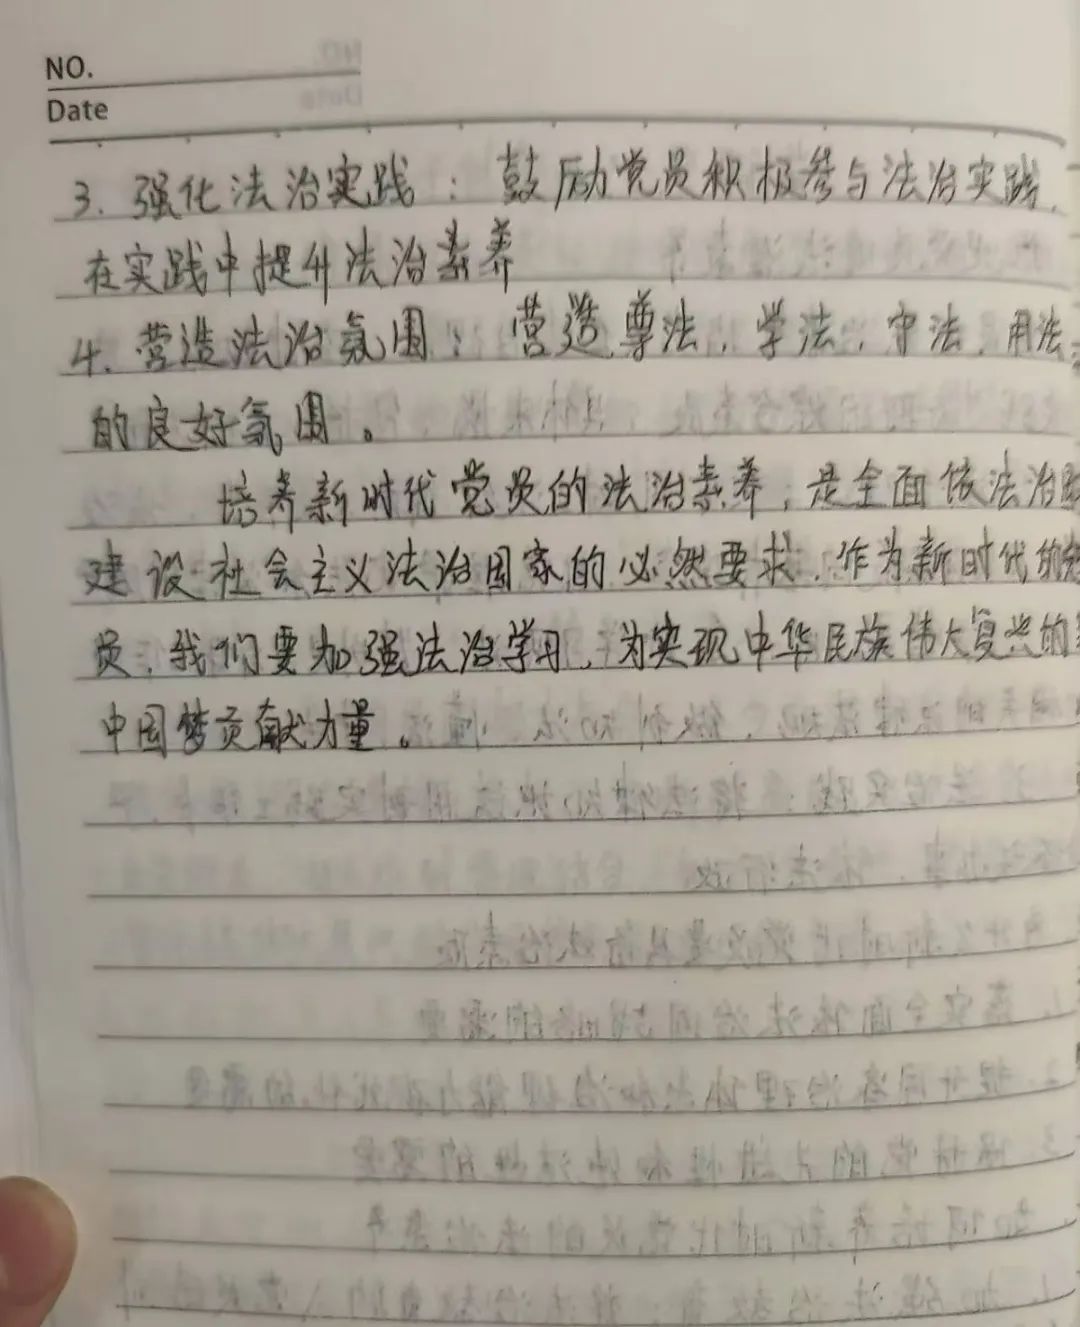 NO.
Date
3. 强化法治实践：鼓励党员积极参与法治实践，
在实践中提升法治素养
4. 营造法治氛围：营造尊法、学法、守法、用法
的良好氛围。
培养新时代党员的法治素养，是全面依法治
建设社会主义法治国家的必然要求，作为新时代的
员，我们要加强法治学习，为实现中华民族伟大复兴的
中国梦贡献力量。